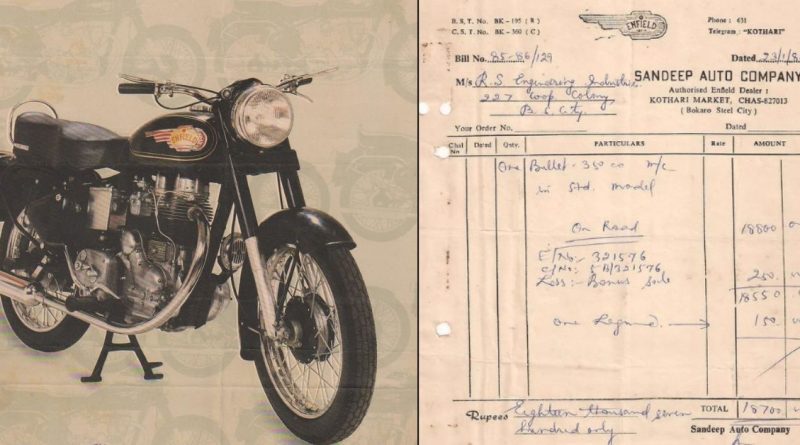 ENFIELD
B. S. T. No. BK-195 ( R )
C. S. T. No. BK-360 (C)
ENFIELD
Phone : 631
Telegram : "KOTHARI"
Bill No. 85-86/129
Dated 23/1/8
M/s R. S. Engineering Industries
SANDEEP AUTO COMPANY
227 Coop Colony
Authorised Enfield Dealer :
B. S. City
KOTHARI MARKET, CHAS-827013
( Bokaro Steel City )
Your Order No.
Dated
Chal No
Dated
Qnty.
PARTICULARS
Rate
AMOUNT
One Bullet - 350 cc m/c
in Std. model
On Road 18800
E/No:- 321576
C/No:- 5 B/321576
Less:- Bonus sale 250
18550
One Legguard 150
Rupees Eighteen thousand seven
TOTAL 18700
hundred only
Sandeep Auto Company